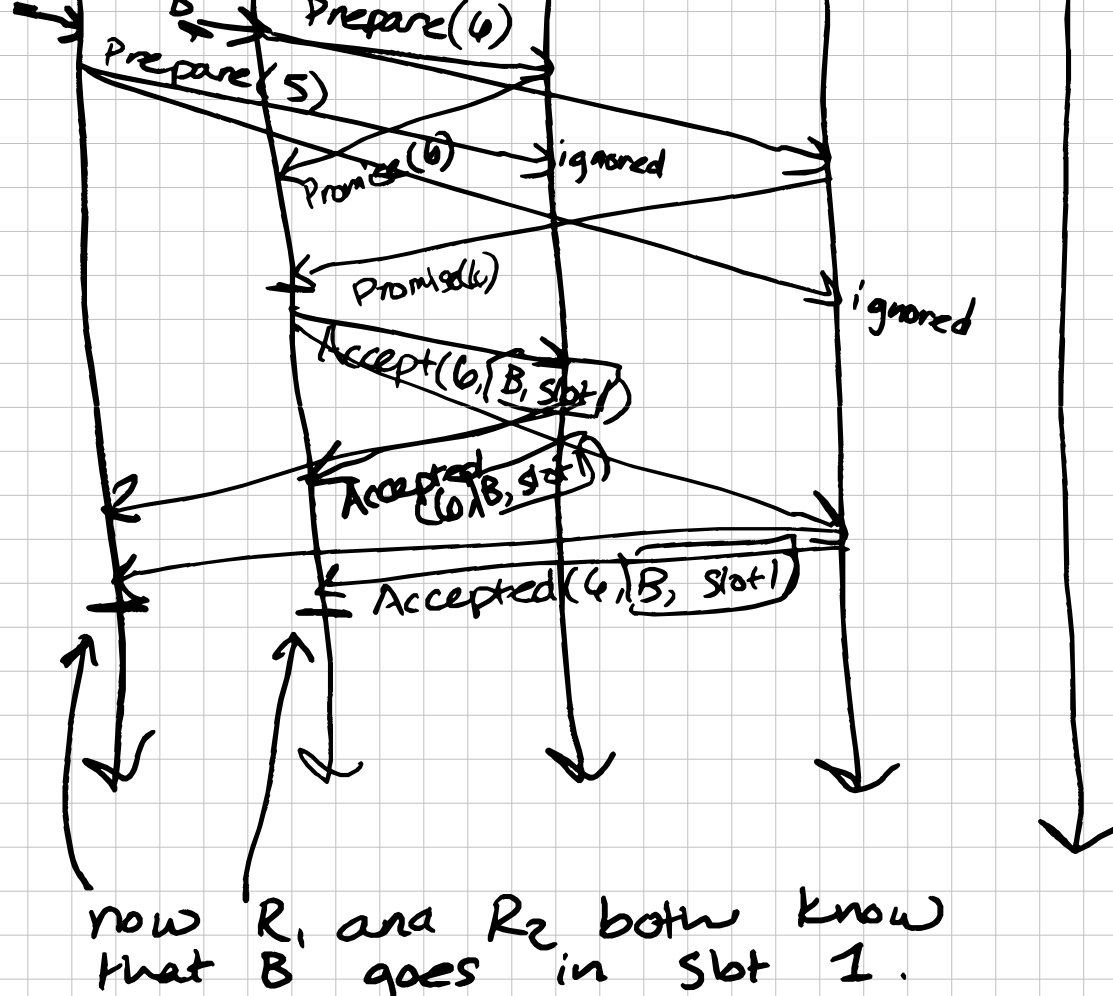 B
Prepare(6)
Prepare(5)
Promise(6)
ignored
Promise(6)
ignored
Accept(6, B, slot 1)
Accepted
(6, B, slot 1)
Accepted(6, B, slot 1)
now R1 and R2 both know
that B goes in slot 1.